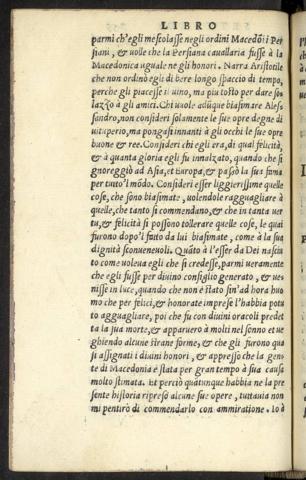 LIBRO
parmi ch'egli mescolasse negli ordini Macedōi i Per
siani, & uolle che la Persiana cauallaria fusse à la
Macedonica uguale ne gli honori. Narra Aristotile
che non ordinò egli di bere longo spaccio di tempo,
perche gli piacesse il uino, ma piu tosto per dare sol
lazzo à gli amici. Chi uuole adūque biasimare Ales
sandro, non consideri solamente le sue opre degne di
uituperio, ma pongasi innanti à gli occhi le sue opre
buone & ree. Consideri chi egli era, di qual felicità,
& à quanta gloria egli fu innalzato, quando che si
gnoreggiò ad Asia, et Europa, & passò la sua fama
per tutto'l mōdo. Consideri esser liggierissime quelle
cose, che sono biasimate, uolendole ragguagliare à
quelle, che tanto si commendano, & che in tanta uer
tu, & felicità si possono tollerare quelle cose, le quai
furono dopo'l fatto da lui biasimate, come à la sua
dignità sconueneuoli. Quāto à l'esser da Dei nasciu
to come uoleua egli che si credesse, parmi ueramente
che egli fusse per diuino consiglio generato, & ue-
nisse in luce, quando che non è stato sin'ad hora huo
mo che per felici, & honorate imprese l'habbia potu
to agguagliare, poi che fu con diuini oracoli predet
ta la sua morte, & apparuero à molti nel sonno et ue
ghiendo alcune strane forme, & che gli furono qua
si assignati i diuini honori, & appresso che la gen-
te di Macedonia è stata per gran tempo à sua causa
molto stimata. Et perciò quatunque habbia ne la pre
sente historia ripreso alcune sue opere, tuttauia non
mi pentirò di commendarlo con ammiratione. Io à